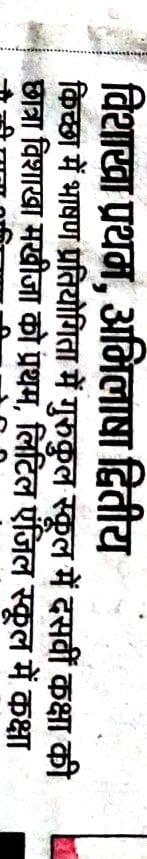 विशाखा प्रथम, अभिलाषा द्वितीय
किच्छा में भाषण प्रतियोगिता में गुरुकुल स्कूल में दसवीं कक्षा की
छात्रा विशाखा मखीजा को प्रथम, लिटिल एंजिल स्कूल में कक्षा